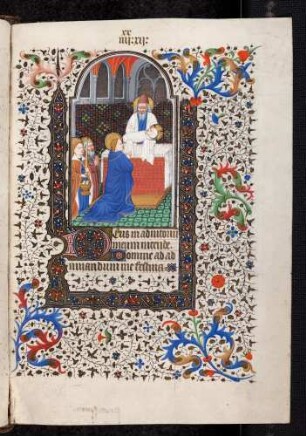 xx
iiii xii
Deus in adiutoriu
meum intende.
Domine ad ad
iuuandum me festina